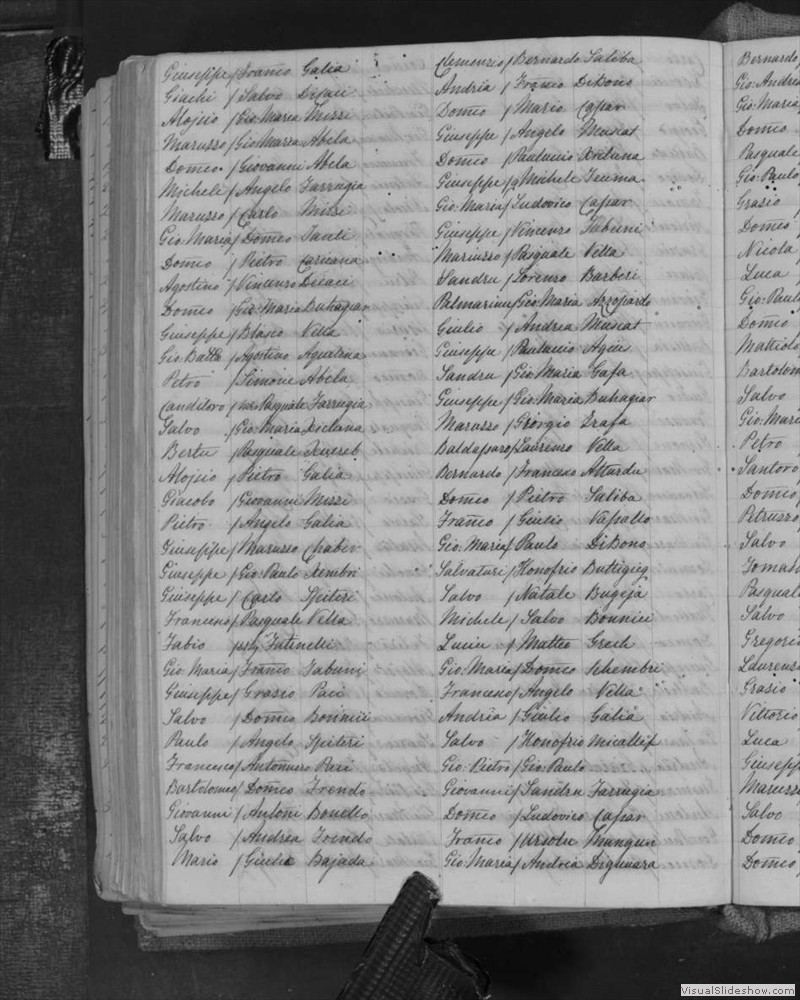 Giuseppe / Franco Galia
Giachi / Salvo
Alojsio / Gio Maria Mizzi
Marusso / Gio Maria Abela
Domeo. / Giovanni Abela
Micheli / Angelo Farrugia
Marusso / Carlo
Gio Maria / Domeo
Domeo / Pietro Caruana
Agostino / Vincenzo
Domeo / Gio Maria Buhagiar
Giuseppe / Blasio Vella
Gio Batta / Agostino Aquilina
Petro / Simone Abela
Canditoro / Pasquale Farrugia
Salvo / Gio Maria Xiclana
Bertu / Pasquale Xuereb
Alojsio / Pietro Galia
Giacobo / Giovanni Mizzi
Pietro / Angelo Galia
Giuseppe / Marusso
Giuseppe / Gio Paulo
Giuseppe / Carlo Spiteri
Francesco / Pasquale Vella
Fabio
Gio Maria / Franco Tabuni
Giuseppe / Grasio Paci
Salvo / Domeo Bonnici
Paulo / Angelo Spiteri
Francesco / Paci
Bartolomeo / Domeo Frendo
Giovanni / Antoni Bonello
Salvo / Andrea Frendo
Mario / Giulio Bajada
Clemenzo / Bernardo Saliba
Andria / Franco DiBono
Domeo / Mario Caspar
Giuseppe / Angelo Muscat
Domeo / Paulucio
Giuseppe / Michele
Gio: Maria / Ludovico Caspar
Giuseppe / Vincenzo Tabuni
Mariusso / Pasquale Vella
Sandru / Lorenzo Barberi
Palmarinu / Gio Maria Azzopardo
Giulio / Andrea Muscat
Giuseppe / Paulucio Agiu
Sandru / Gio Maria Gafa
Giuseppe / Gio Maria Buhagiar
Marusso / Giorgio Grafa
Baldassaro / Laurenzo Vella
Bernardo / Francesco Attardu
Domeo / Pietro Saliba
Franco / Giulio Vassallo
Gio: Maria / Paulo DiBono
Salvaturi / Honofrio Buttigieg
Salvo / Natale Bugeja
Michele / Salvo Bonnici
Luciu / Matteo Grech
Gio: Maria / Domeo Schembri
Francesco / Angelo Vella
Andria / Giulio Galia
Salvo / Honofrio Micallif
Gio: Pietro / Gio Paulo
Giovanni / Sandru Farrugia
Domeo / Ludovico Caspar
Franco / Ursolu Mangiun
Gio: Maria / Andria
Bernardo
Gio: Andrea
Gio: Maria
Domeo
Pasquale
Gio: Paulo
Grasio
Domeo
Nicola
Luca
Gio: Paulo
Domeo
Mattiolo
Bartolom
Salvo
Gio: Maria
Petro
Santoro
Domeo
Petrusso
Salvo
Tomaso
Pasquale
Salvo
Gregorio
Laurenso
Grasio
Vittorio
Luca
Giuseppe
Marusso
Salvo
Domeo
Domeo
VisualSlideshow.com